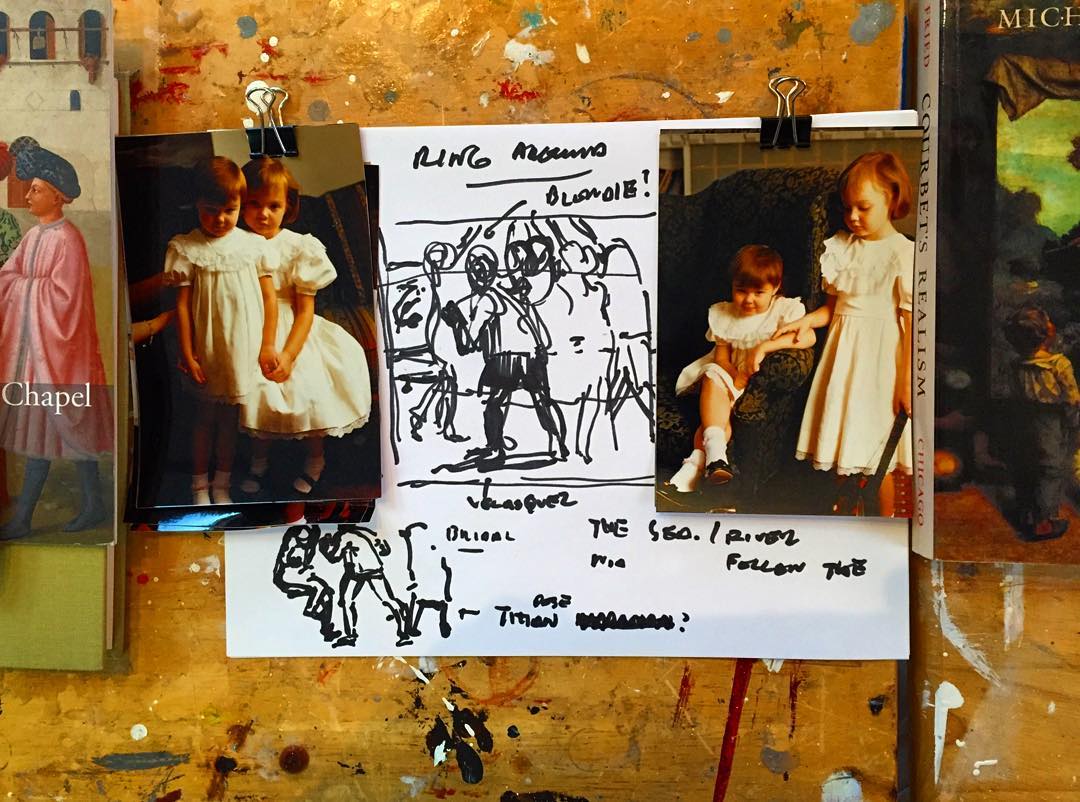 Chapel
RING AROUND
BLONDIE!
VELASQUEZ
BRIDAL
THE SEA. / RIVER
MIA FOLLOW THE
AGE
TITIAN ?
FRIED COURBET'S REALISM CHICAGO
MICH